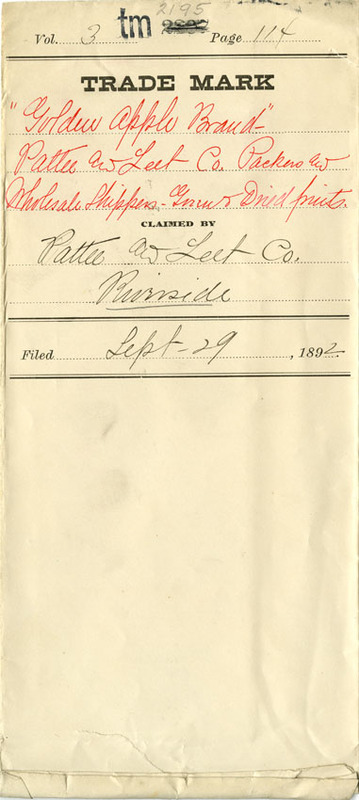 2195
Vol. 3 tm Page 114
TRADE MARK
"Golden Apple Brand"
Pattee and Lett Co. Packers and
Wholesale Shippers - Green & Dried fruits.
CLAIMED BY
Pattee and Lett Co.
Riverside
Filed Sept - 29, 1892.